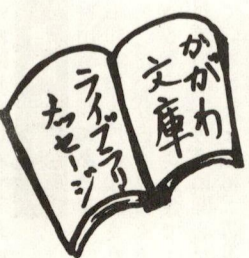 かがわ
文庫
ライブラリ
メッセージ